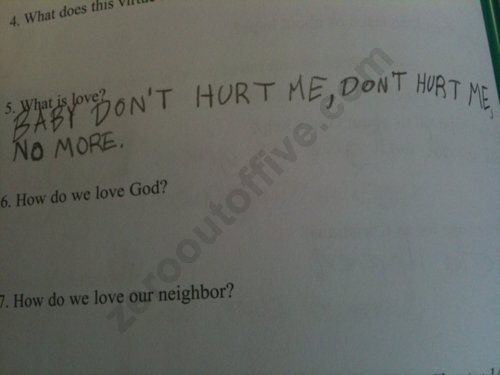 4. What does this virtue
5. What is love?
BABY DON'T HURT ME, DON'T HURT ME,
NO MORE.
6. How do we love God?
7. How do we love our neighbor?
zerooutoffive.com